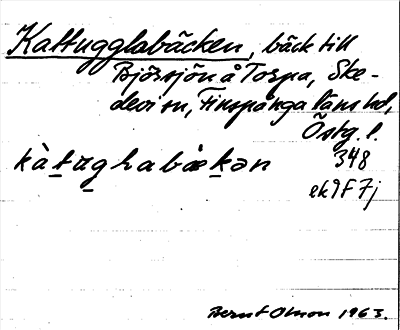 Kattugglabäcken, bäck till
Björsjön å Torpa, Ske-
devi sn, Finspånga läns hd,
Östg. l.
348
ek 9F7j
Bernt Olsson 1963.